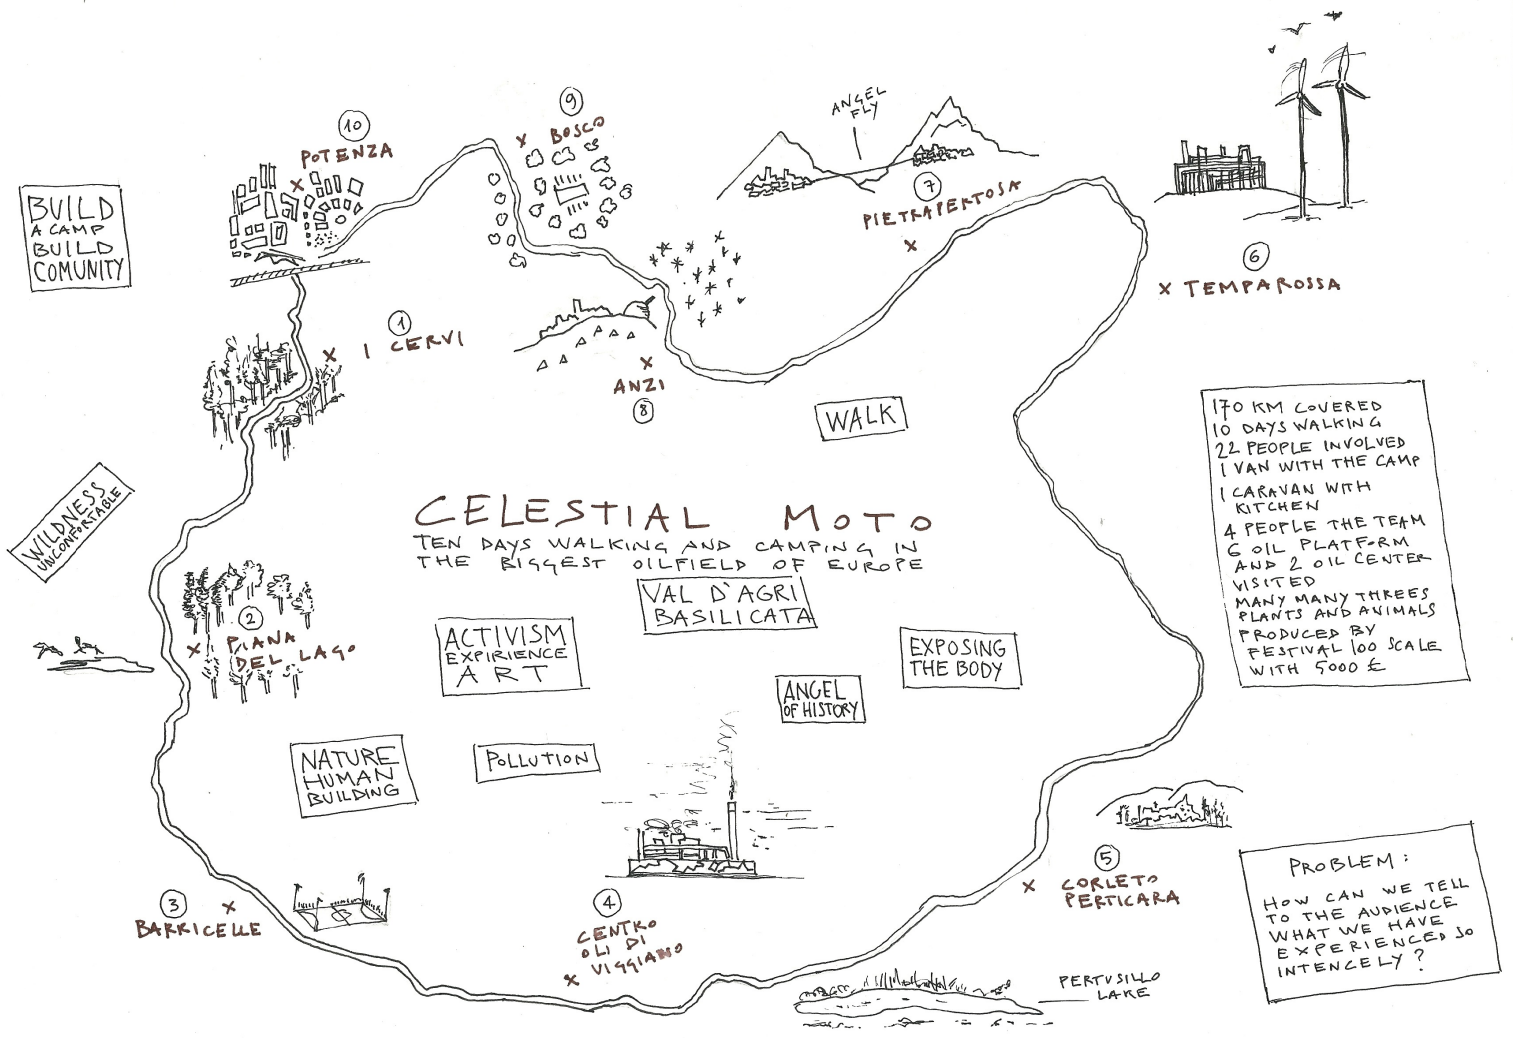 9
BOSCO
10
POTENZA
ANGEL
FLY
7
PIETRAPERTOSA
6
TEMPAROSSA
BUILD
A CAMP
BUILD
COMUNITY
1
I CERVI
ANZI
8
WALK
170 KM COVERED
10 DAYS WALKING
22 PEOPLE INVOLVED
1 VAN WITH THE CAMP
1 CARAVAN WITH
KITCHEN
4 PEOPLE THE TEAM
6 OIL PLATFORM
AND 2 OIL CENTER
VISITED
MANY MANY THREES
PLANTS AND ANIMALS
PRODUCED BY
FESTIVAL 100 SCALE
WITH 5000 £
WILDNESS
UNCONFORTABLE
CELESTIAL MOTO
TEN DAYS WALKING AND CAMPING IN
THE BIGGEST OILFIELD OF EUROPE
VAL D'AGRI
BASILICATA
2
PIANA
DEL LAGO
ACTIVISM
EXPIRIENCE
ART
EXPOSING
THE BODY
ANGEL
OF HISTORY
NATURE
HUMAN
BUILDING
POLLUTION
3
BARRICELLE
4
CENTRO
OLI DI
VIGGIANO
5
CORLETO
PERTICARA
PERTUSILLO
LAKE
PROBLEM:
HOW CAN WE TELL
TO THE AUDIENCE
WHAT WE HAVE
EXPERIENCED SO
INTENCELY?